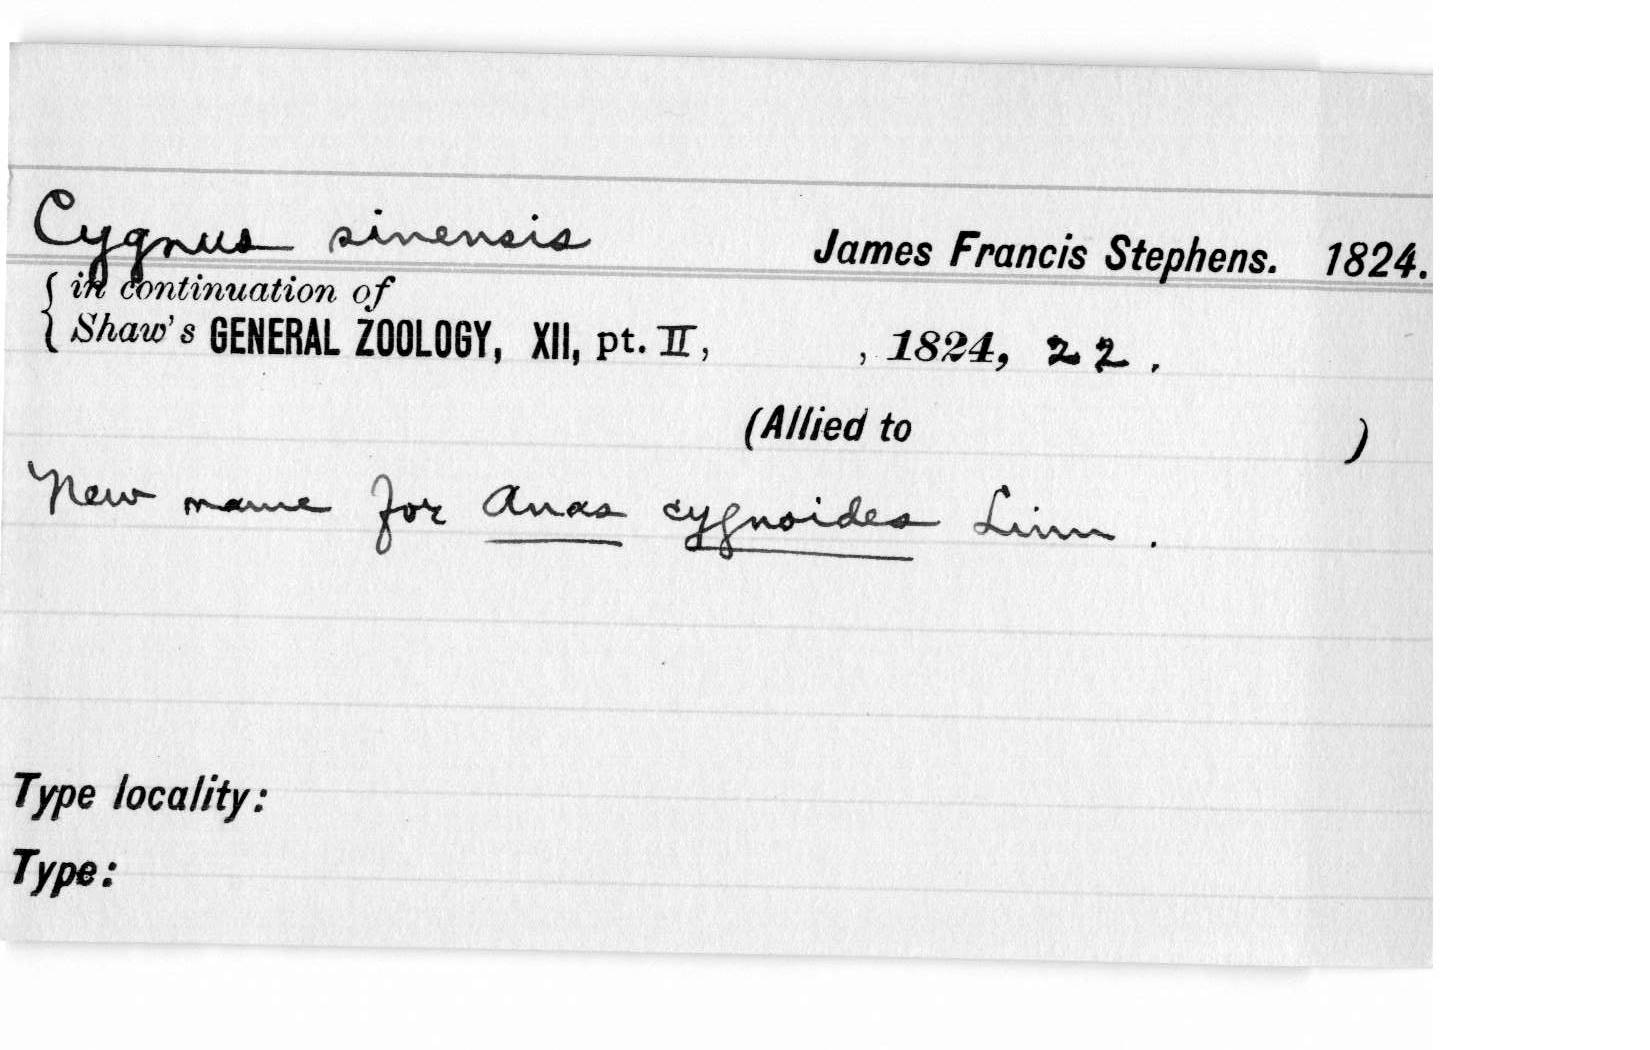 Cygnus sinensis James Francis Stephens. 1824.
{ in continuation of
Shaw's GENERAL ZOOLOGY, XII, pt. II, , 1824, 22.
(Allied to )
New name for Anas cygnoides Linn.
Type locality:
Type: